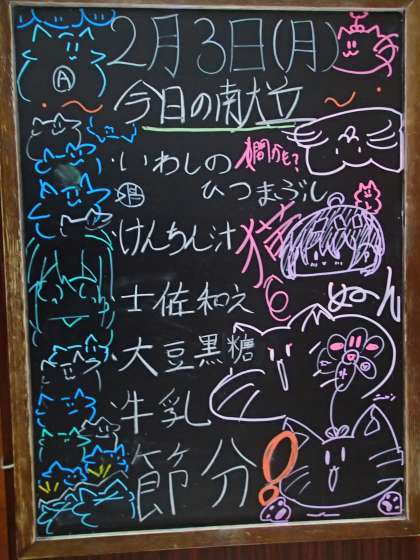 2月3日(月)
Ⓐ
今日の南大立
～ ～
・いわしの
ひつまぶし
・けんちん汁
猫
6
・士佐和え
ぬーん
・大豆黒糖
・牛乳
節分!